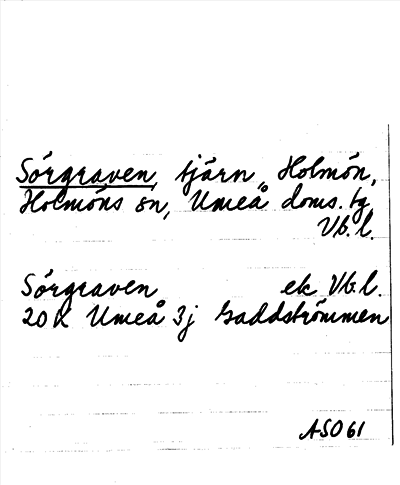 Sörgraven, tjärn, Holmön,
Holmöns sn, Umeå doms. tg
Vb. l.
Sörgraven ek Vb. l.
20 K Umeå 3j Gaddströmmen
ASO 61